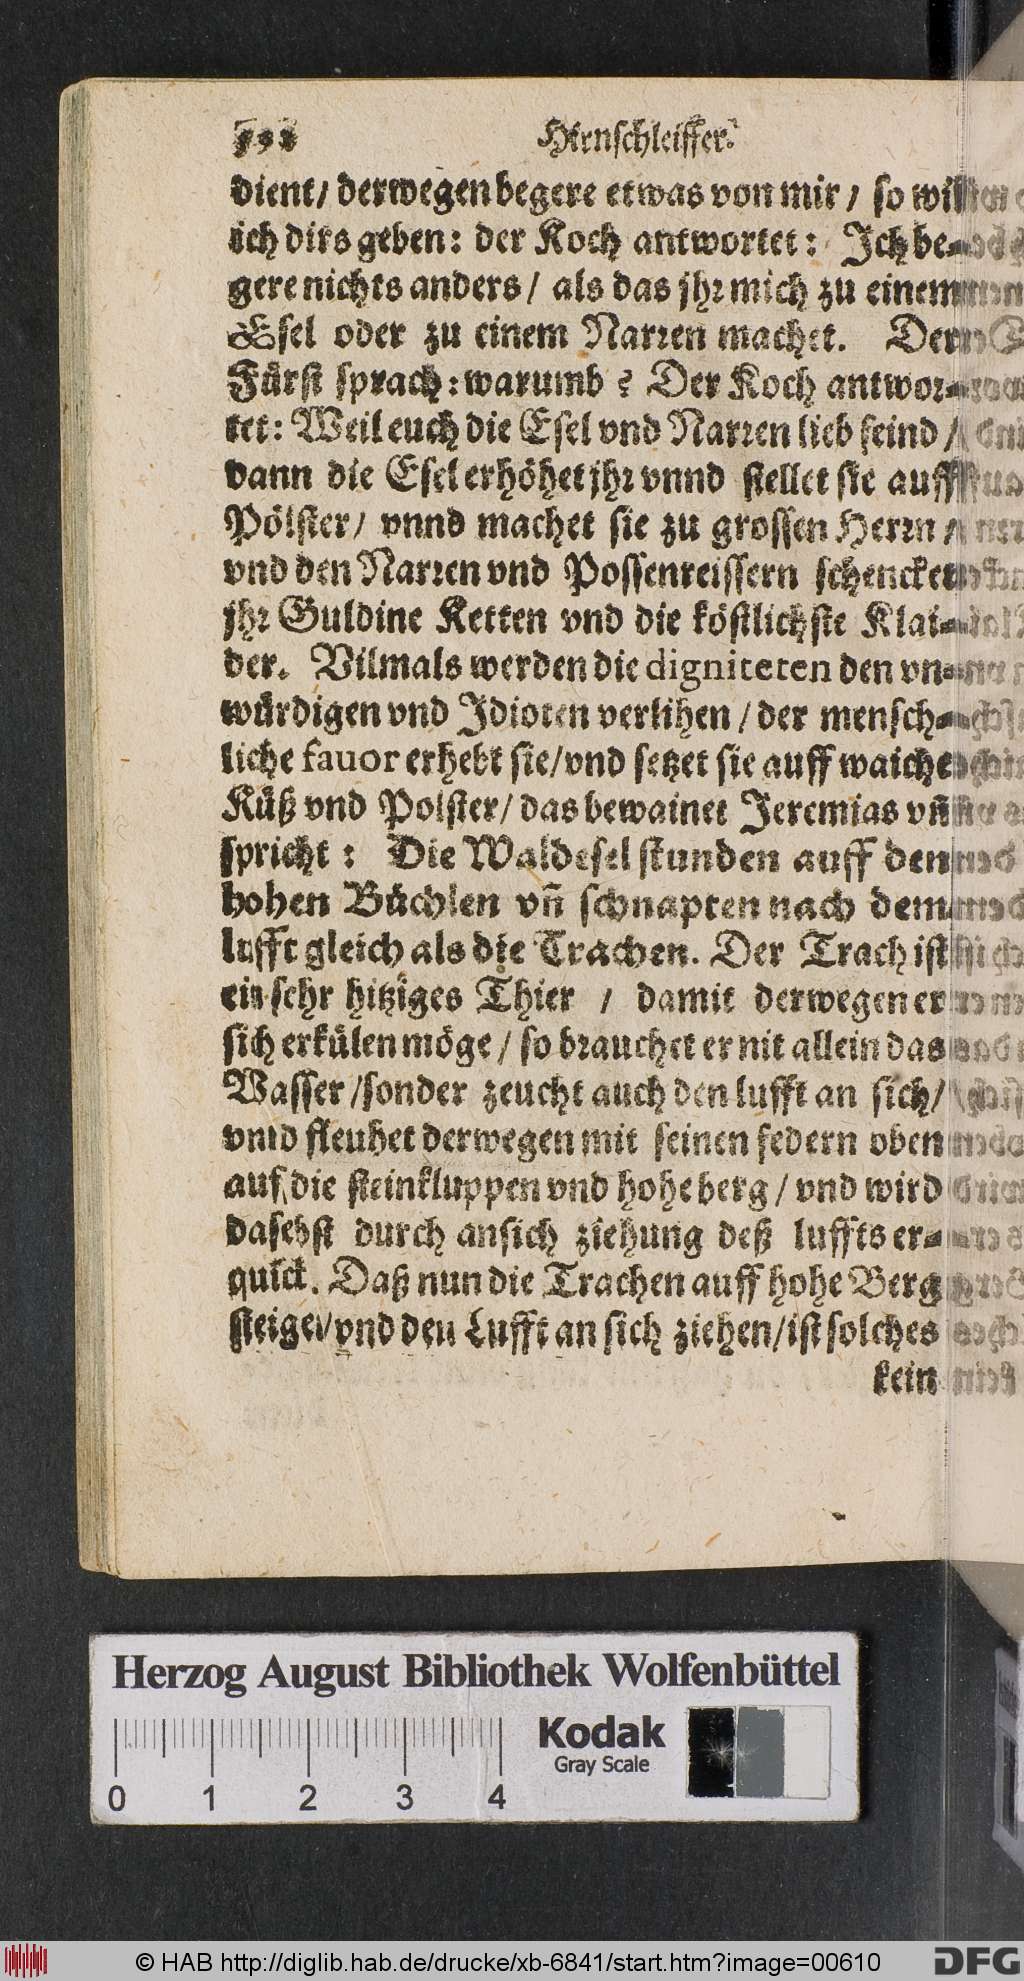 Hirnschleiffer.
dient/ derwegen begere etwas von mir / so will
ich dirs geben: der Koch antwortet: Ich be-
gere nichts anders / als das jhr mich zu einem
Esel oder zu einem Narren machet. Der
Fürst sprach: warumb? Der Koch antwor-
tet: Weil euch die Esel vnd Narren lieb seind /
dann die Esel erhöhet jhr vnnd stellet sie auff
Pölster/ vnnd machet sie zu grossen Herrn /
vnd den Narren vnd Possenreissern schencket
jhr Guldine Ketten vnd die köstlichste Klai-
der. Vilmals werden die digniteten den vn-
würdigen vnd Idioten verlihen / der mensch-
liche fauor erhebt sie/vnd setzet sie auff waiche
Küß vnd Polster/ das bewainet Jeremias vñ
spricht: Die Waldesel stunden auff den
hohen Büchlen vñ schnapten nach dem
lufft gleich als die Trachen. Der Trach ist
ein sehr hitziges Thier / damit derwegen er
sich erkülen möge / so brauchet er nit allein das
Wasser /sonder zeucht auch den lufft an sich/
vnnd fleuhet derwegen mit seinen federn oben
auf die steinkluppen vnd hohe berg / vnd wird
daselbst durch ansich ziehung deß luffts er-
quickt. Daß nun die Trachen auff hohe Berg
steigen/vnd den Lufft an sich ziehen/ist solches
kein
Herzog August Bibliothek Wolfenbüttel
Kodak
Gray Scale
0 1 2 3 4
© HAB http://diglib.hab.de/drucke/xb-6841/start.htm?image=00610
DFG